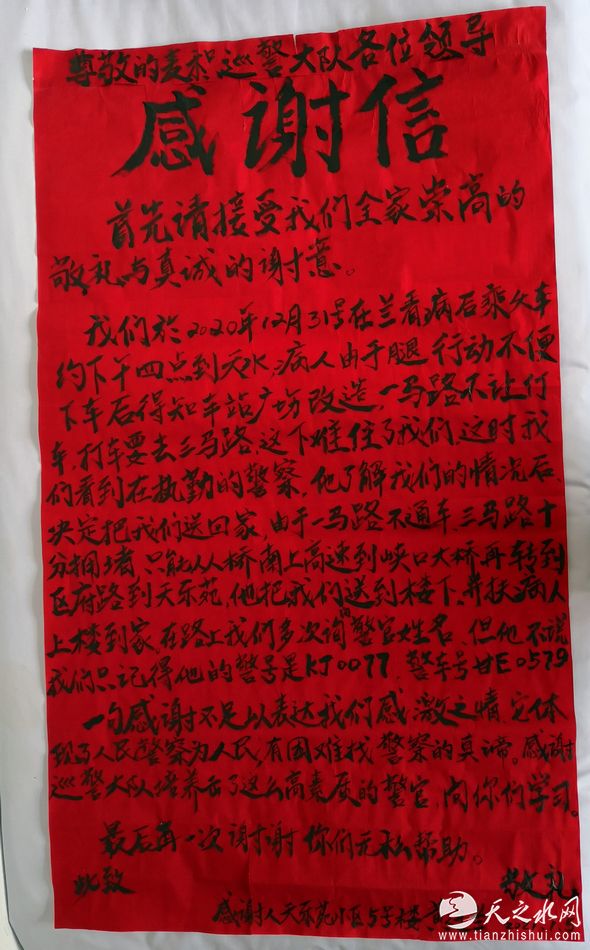 尊敬的麦积巡警大队各位领导
感谢信
首先请接受我们全家崇高的
敬礼与真诚的谢意。
我们於2020年12月31号在兰看病后乘火车
约下午四点到天水,病人由于腿行动不便
下车后得知车站广场改造,一马路不让打
车,打车要去三马路,这下难住了我们,这时我
们看到在执勤的警察,他了解我们的情况后,
决定把我们送回家,由于一马路不通车,三马路十
分拥堵,只能从人桥南上高速到峡口大桥再转到
区府路到天乐苑,他把我们送到楼下,并扶病人
上楼到家,在路上我们多次询问警官姓名,但他不说
我们只记得他的警号是KJ0077,警车号甘E0579
一句感谢不足以表达我们感激之情,它体
现了人民警察为人民,有困难找警察的真谛。感谢
巡警大队培养出了这么高素质的警官,向你们学习。
最后再一次谢谢你们无私帮助。
此致 敬礼
感谢人天乐苑小区5号楼
天之水网
www.tianzhishui.com